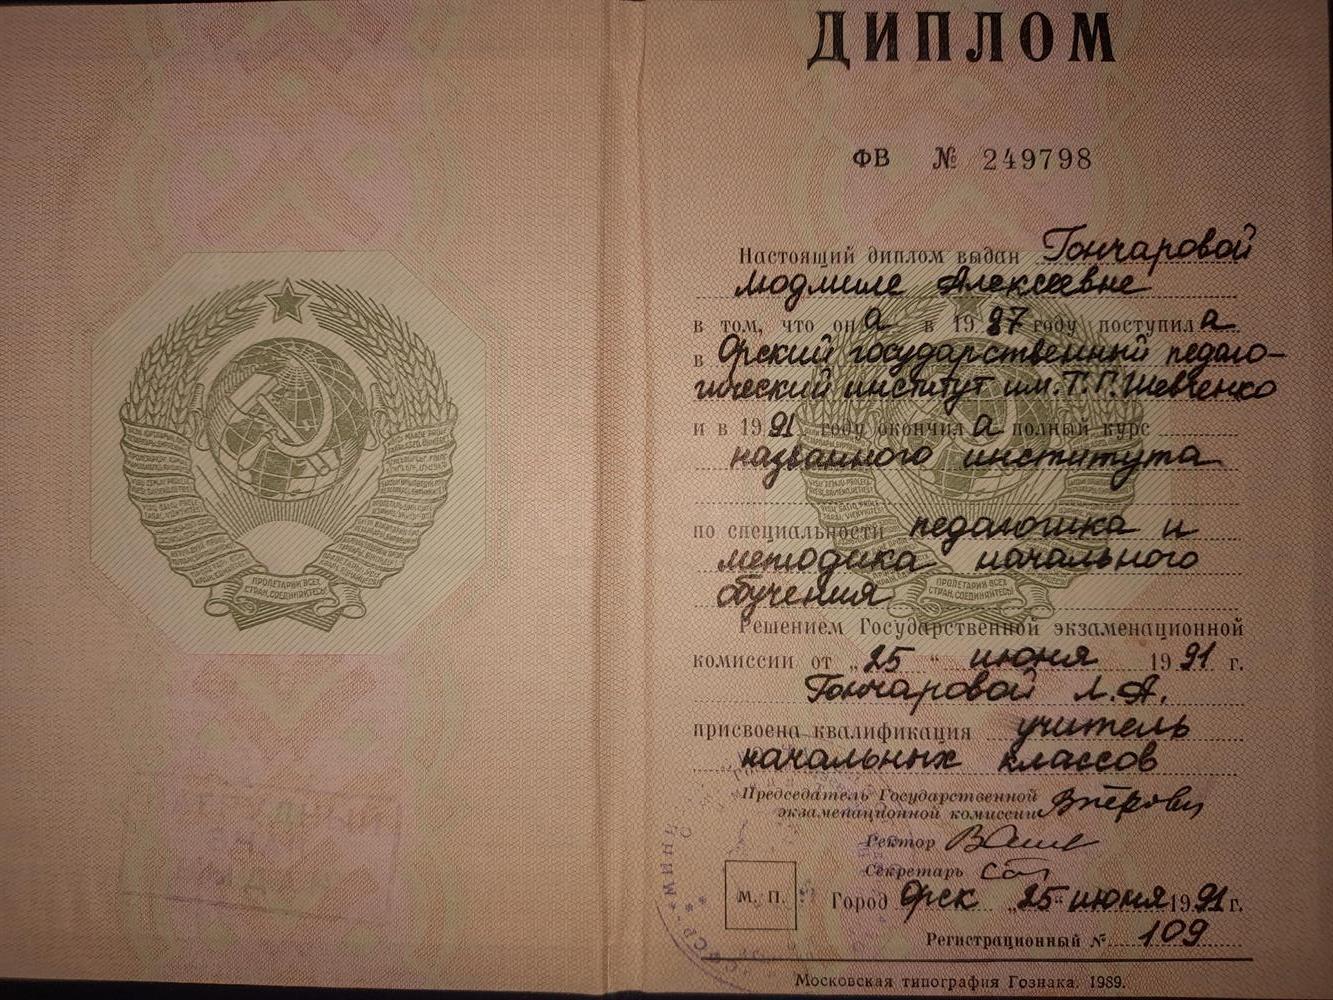 ПРОЛЕТАРИИ ВСЕХ
СТРАН, СОЕДИНЯЙТЕСЬ!
ДИПЛОМ
ФВ № 249798
Настоящий диплом выдан Гончаровой
Людмиле Алексеевне
в том, что она в 1987 году поступила
в Орский государственный педаго-
гический институт им. Т. Г. Шевченко
и в 1991 году окончила полный курс
названного института
по специальности педагогика и
методика начального
обучения
Решением Государственной экзаменационной
комиссии от „25“ июня 1991 г.
Гончаровой Л. А.
присвоена квалификация учитель
начальных классов
Председатель Государственной
экзаменационной комиссии
Ректор
Секретарь
М. П.
Город Орск „25“ июня 1991 г.
Регистрационный № 109
Московская типография Гознака. 1989.